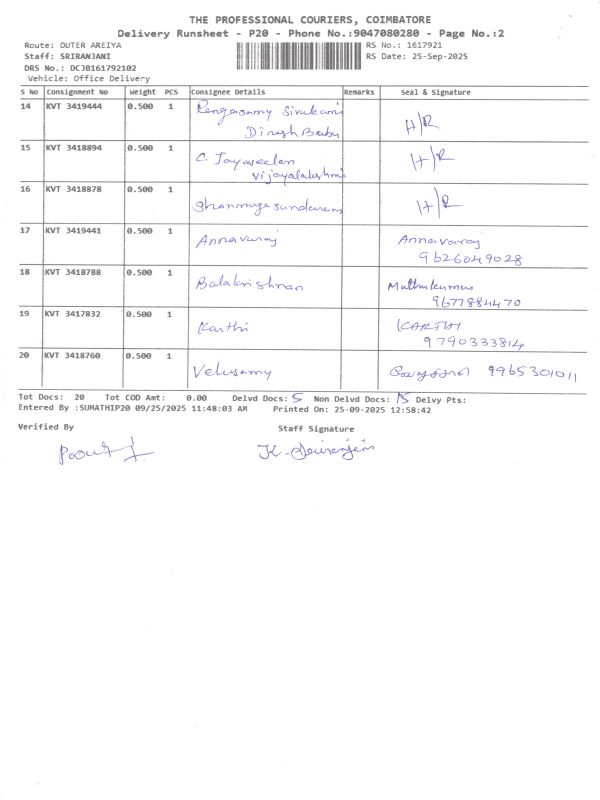 THE PROFESSIONAL COURIERS, COIMBATORE
Delivery Runsheet - P20 - Phone No.:9047080280 - Page No.:2
Route: OUTER AREIYA RS No.: 1617921
Staff: SRIRANJANI RS Date: 25-Sep-2025
DRS No.: DCJB161792102
Vehicle: Office Delivery
S No Consignment No Weight PCS Consignee Details Remarks Seal & Signature
14 KVT 3419444 0.500 1 Rengasamy Sivakami
Dinesh Babu H/R
15 KVT 3418894 0.500 1 C. Jayaseelan
Vijayalakshmi H/R
16 KVT 3418878 0.500 1 Shanmugasundaram H/R
17 KVT 3419441 0.500 1 Annavaraj Annavaraj
9626049028
18 KVT 3418788 0.500 1 Balakrishnan Muthukumar
9677884470
19 KVT 3417832 0.500 1 Karthi KARTHI
9790333814
20 KVT 3418760 0.500 1 Velusamy 9965301011
Tot Docs: 20 Tot COD Amt: 0.00 Delvd Docs: 5 Non Delvd Docs: 15 Delvy Pts:
Entered By :SUMATHIP20 09/25/2025 11:48:03 AM Printed On: 25-09-2025 12:58:42
Verified By Staff Signature